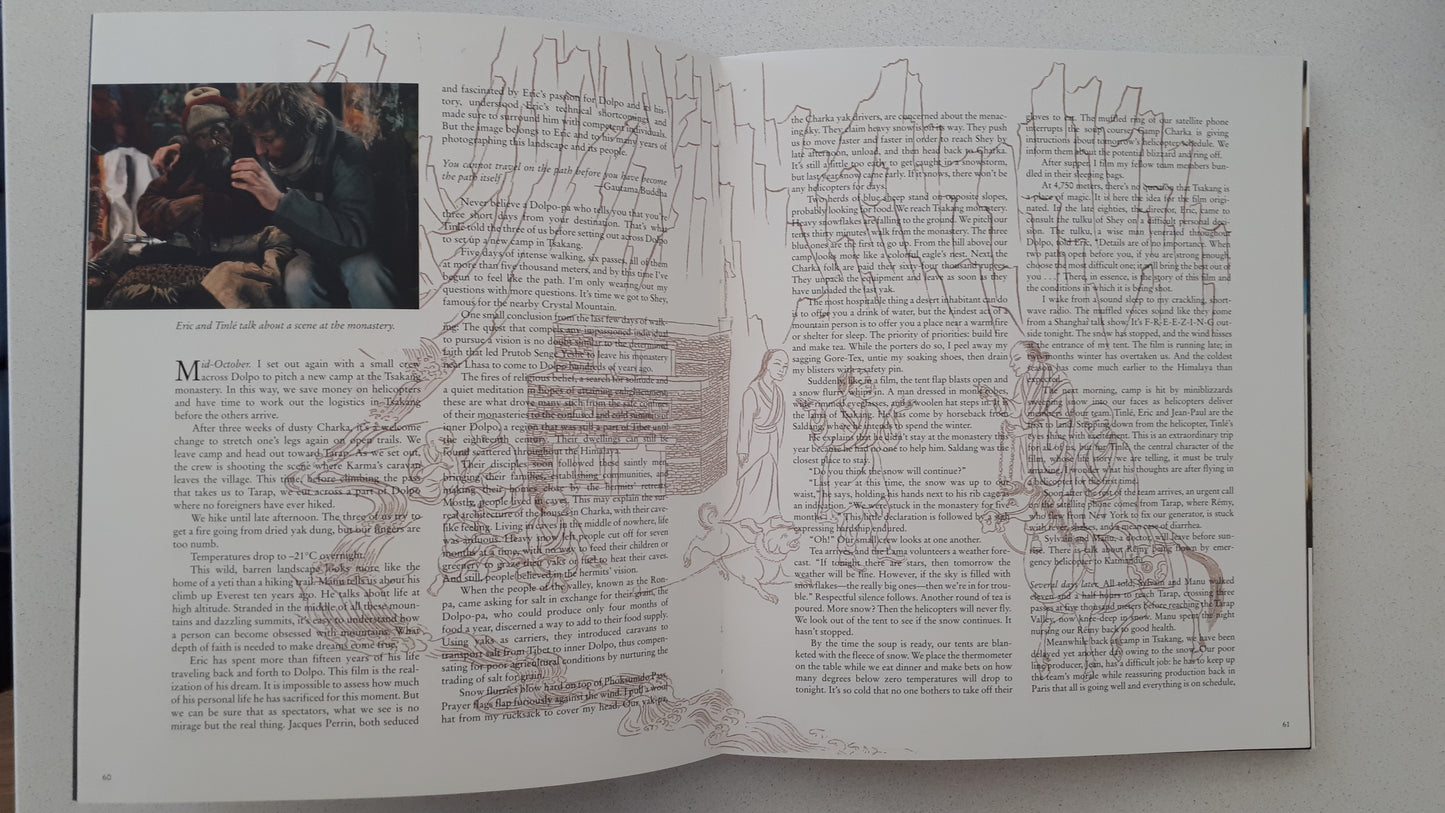 Eric and Tinlé talk about a scene at the monastery.
Mid-October. I set out again with a small crew
across Dolpo to pitch a new camp at the Tsakang
monastery. In this way, we save money on helicopters
and have time to work out the logistics in Tsakang
before the others arrive.
After three weeks of dusty Charka, it's a welcome
change to stretch one's legs again on open trails. We
leave camp and head out toward Tarap. As we set out,
the crew is shooting the scene where Karma's caravan
leaves the village. This time, before climbing the pass
that takes us to Tarap, we cut across a part of Dolpo
where no foreigners have ever hiked.
We hike until late afternoon. The three of us try to
get a fire going from dried yak dung, but our fingers are
too numb.
Temperatures drop to –21°C overnight.
This wild, barren landscape looks more like the
home of a yeti than a hiking trail. Manu tells us about his
climb up Everest ten years ago. He talks about life at
high altitude. Stranded in the middle of all these moun-
tains and dazzling summits, it's easy to understand how
a person can become obsessed with mountains. What
depth of faith is needed to make dreams come true.
Eric has spent more than fifteen years of his life
traveling back and forth to Dolpo. This film is the real-
ization of his dream. It is impossible to assess how much
of his personal life he has sacrificed for this moment. But
we can be sure that as spectators, what we see is no
mirage but the real thing. Jacques Perrin, both seduced
60
and fascinated by Eric's passion for Dolpo and its his-
tory, understood Eric's technical shortcomings and
made sure to surround him with competent individuals.
But the image belongs to Eric and to his many years of
photographing this landscape and its people.
You cannot travel on the path before you have become
the path itself.
—Gautama Buddha
Never believe a Dolpo-pa who tells you that you're
three short days from your destination. That's what
Tinlé told the three of us before setting out across Dolpo
to set up a new camp in Tsakang.
Five days of intense walking, six passes, all of them
at more than five thousand meters, and by this time I've
begun to feel like the path. I'm only wearing out my
questions with more questions. It's time we got to Shey,
famous for the nearby Crystal Mountain.
One small conclusion from the last few days of walk-
ing: The quest that compels any impassioned individual
to pursue a vision is no doubt similar to the determined
faith that led Prutob Senge Yeshe to leave his monastery
near Lhasa to come to Dolpo hundreds of years ago.
The fires of religious belief, a search for solitude and
a quiet meditation in hopes of attaining enlightenment,
these are what drove many such from the safe confines
of their monasteries to the confused and cold summits of
inner Dolpo, a region that was still a part of Tibet until
the eighteenth century. Their dwellings can still be
found scattered throughout the Himalaya.
Their disciples soon followed these saintly men,
bringing their families, establishing communities, and
making their homes close by the hermits' retreat.
Mostly, people lived in caves. This may explain the sur-
real architecture of the houses in Charka, with their cave-
like feeling. Living in caves in the middle of nowhere, life
was arduous. Heavy snow left people cut off for seven
months at a time, with no way to feed their children or
greenery to graze their yaks or fuel to heat their caves.
And still people believed in the hermits' vision.
When the people of the valley, known as the Ron-
pa, came asking for salt in exchange for their grain, the
Dolpo-pa, who could produce only four months of
food a year, discerned a way to add to their food supply.
Using yaks as carriers, they introduced caravans to
transport salt from Tibet to inner Dolpo, thus compen-
sating for poor agricultural conditions by nurturing the
trading of salt for grain.
Snow flurries blow hard on top of Phoksumdo Pass.
Prayer flags flap furiously against the wind. I pull a wool
hat from my rucksack to cover my head. Our yak-pa,
the Charka yak drivers, are concerned about the menac-
ing sky. They claim heavy snow is on its way. They push
us to move faster and faster in order to reach Shey by
late afternoon, unload, and then head back to Charka.
It's still a little too early to get caught in a snowstorm,
but last year snow came early. If it snows, there won't be
any helicopters for days.
Two herds of blue sheep stand on opposite slopes,
probably looking for food. We reach Tsakang monastery.
Heavy snowflakes are falling to the ground. We pitch our
tents thirty minutes' walk from the monastery. The three
blue ones are the first to go up. From the hill above, our
camp looks more like a colorful eagle's nest. Next, the
Charka folk are paid their sixty four thousand rupees.
They unpack the equipment and leave as soon as they
have unloaded the last yak.
The most hospitable thing a desert inhabitant can do
is to offer you a drink of water, but the kindest act of a
mountain person is to offer you a place near a warm fire
or shelter for sleep. The priority of priorities: build fire
and make tea. While the porters do so, I peel away my
sagging Gore-Tex, untie my soaking shoes, then drain
my blisters with a safety pin.
Suddenly, like in a film, the tent flap blasts open and
a snow flurry whips in. A man dressed in monk robes,
wide-rimmed eyeglasses, and a woolen hat steps in. It is
the lama of Tsakang. He has come by horseback from
Saldang where he intends to spend the winter.
He explains that he didn't stay at the monastery this
year because he had no one to help him. Saldang was the
closest place to stay.
"Do you think the snow will continue?"
"Last year at this time, the snow was up to our
waist," he says, holding his hands next to his rib cage as
an indication. "We were stuck in the monastery for five
months." This little declaration is followed by a sigh
expressing hardship endured.
"Oh!" Our small crew looks at one another.
Tea arrives, and the Lama volunteers a weather fore-
cast. "If tonight there are stars, then tomorrow the
weather will be fine. However, if the sky is filled with
snowflakes—the really big ones—then we're in for trou-
ble." Respectful silence follows. Another round of tea is
poured. More snow? Then the helicopters will never fly.
We look out of the tent to see if the snow continues. It
hasn't stopped.
By the time the soup is ready, our tents are blan-
keted with the fleece of snow. We place the thermometer
on the table while we eat dinner and make bets on how
many degrees below zero temperatures will drop to
tonight. It's so cold that no one bothers to take off their
gloves to eat. The muffled ring of our satellite phone
interrupts the soup course. Camp Charka is giving
instructions about tomorrow's helicopter schedule. We
inform them about the potential blizzard and ring off.
After supper, I film my fellow team members bun-
dled in their sleeping bags.
At 4,750 meters, there's no question that Tsakang is
a place of magic. It is here the idea for the film origi-
nated. In the late eighties, the director, Eric, came to
consult the tulku of Shey on a difficult personal deci-
sion. The tulku, a wise man venerated throughout
Dolpo, told Eric, "Details are of no importance. When
two paths open before you, if you are strong enough,
choose the most difficult one; it will bring the best out of
you . . ." There, in essence, is the story of this film and
the conditions in which it is being shot.
I wake from a sound sleep to my crackling, short-
wave radio. The muffled voices sound like they come
from a Shanghai talk show. It's F-R-E-E-Z-I-N-G out-
side tonight. The snow has stopped, and the wind hisses
at the entrance of my tent. The film is running late; in
two months winter has overtaken us. And the coldest
season has come much earlier to the Himalaya than
expected.
The next morning, camp is hit by miniblizzards
sweeping snow into our faces as helicopters deliver
members of our team. Tinlé, Eric and Jean-Paul are the
first to land. Stepping down from the helicopter, Tinlé's
eyes shine with excitement. This is an extraordinary trip
for all of us, but for Tinlé, the central character of the
film, whose life story we are telling, it must be truly
amazing. I wonder what his thoughts are after flying in
a helicopter for the first time.
Soon after the rest of the team arrives, an urgent call
on the satellite phone comes from Tarap, where Rémy,
who flew from New York to fix our generator, is stuck
with fever, aches, and a mean case of diarrhea.
Sylvain and Manu, a doctor, will leave before sun-
rise. There is talk about Rémy being flown by emer-
gency helicopter to Kathmandu.
Several days later. All told, Sylvain and Manu walked
eleven and a half hours to reach Tarap, crossing three
passes at five thousand meters before reaching the Tarap
Valley, now knee-deep in snow. Manu spent the night
nursing our Rémy back to good health.
Meanwhile back at camp in Tsakang, we have been
delayed yet another day owing to the snow. Our poor
line producer, Jean, has a difficult job: he has to keep up
the team's morale while reassuring production back in
Paris that all is going well and everything is on schedule,
61